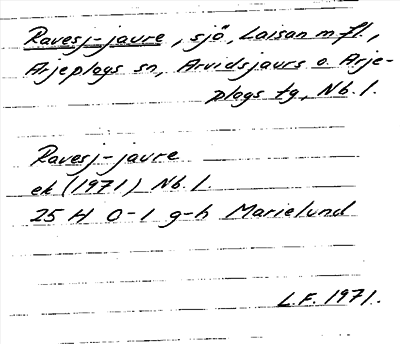 Ravesj-jaure, sjö, Laisan m fl.,
Arjeplogs sn, Arvidsjaurs o. Arje-
plogs tg, Nb. l.
Ravesj-jaure
ek (1971) Nb. l.
25 H 0-1 g-h Marielund
L.F. 1971.